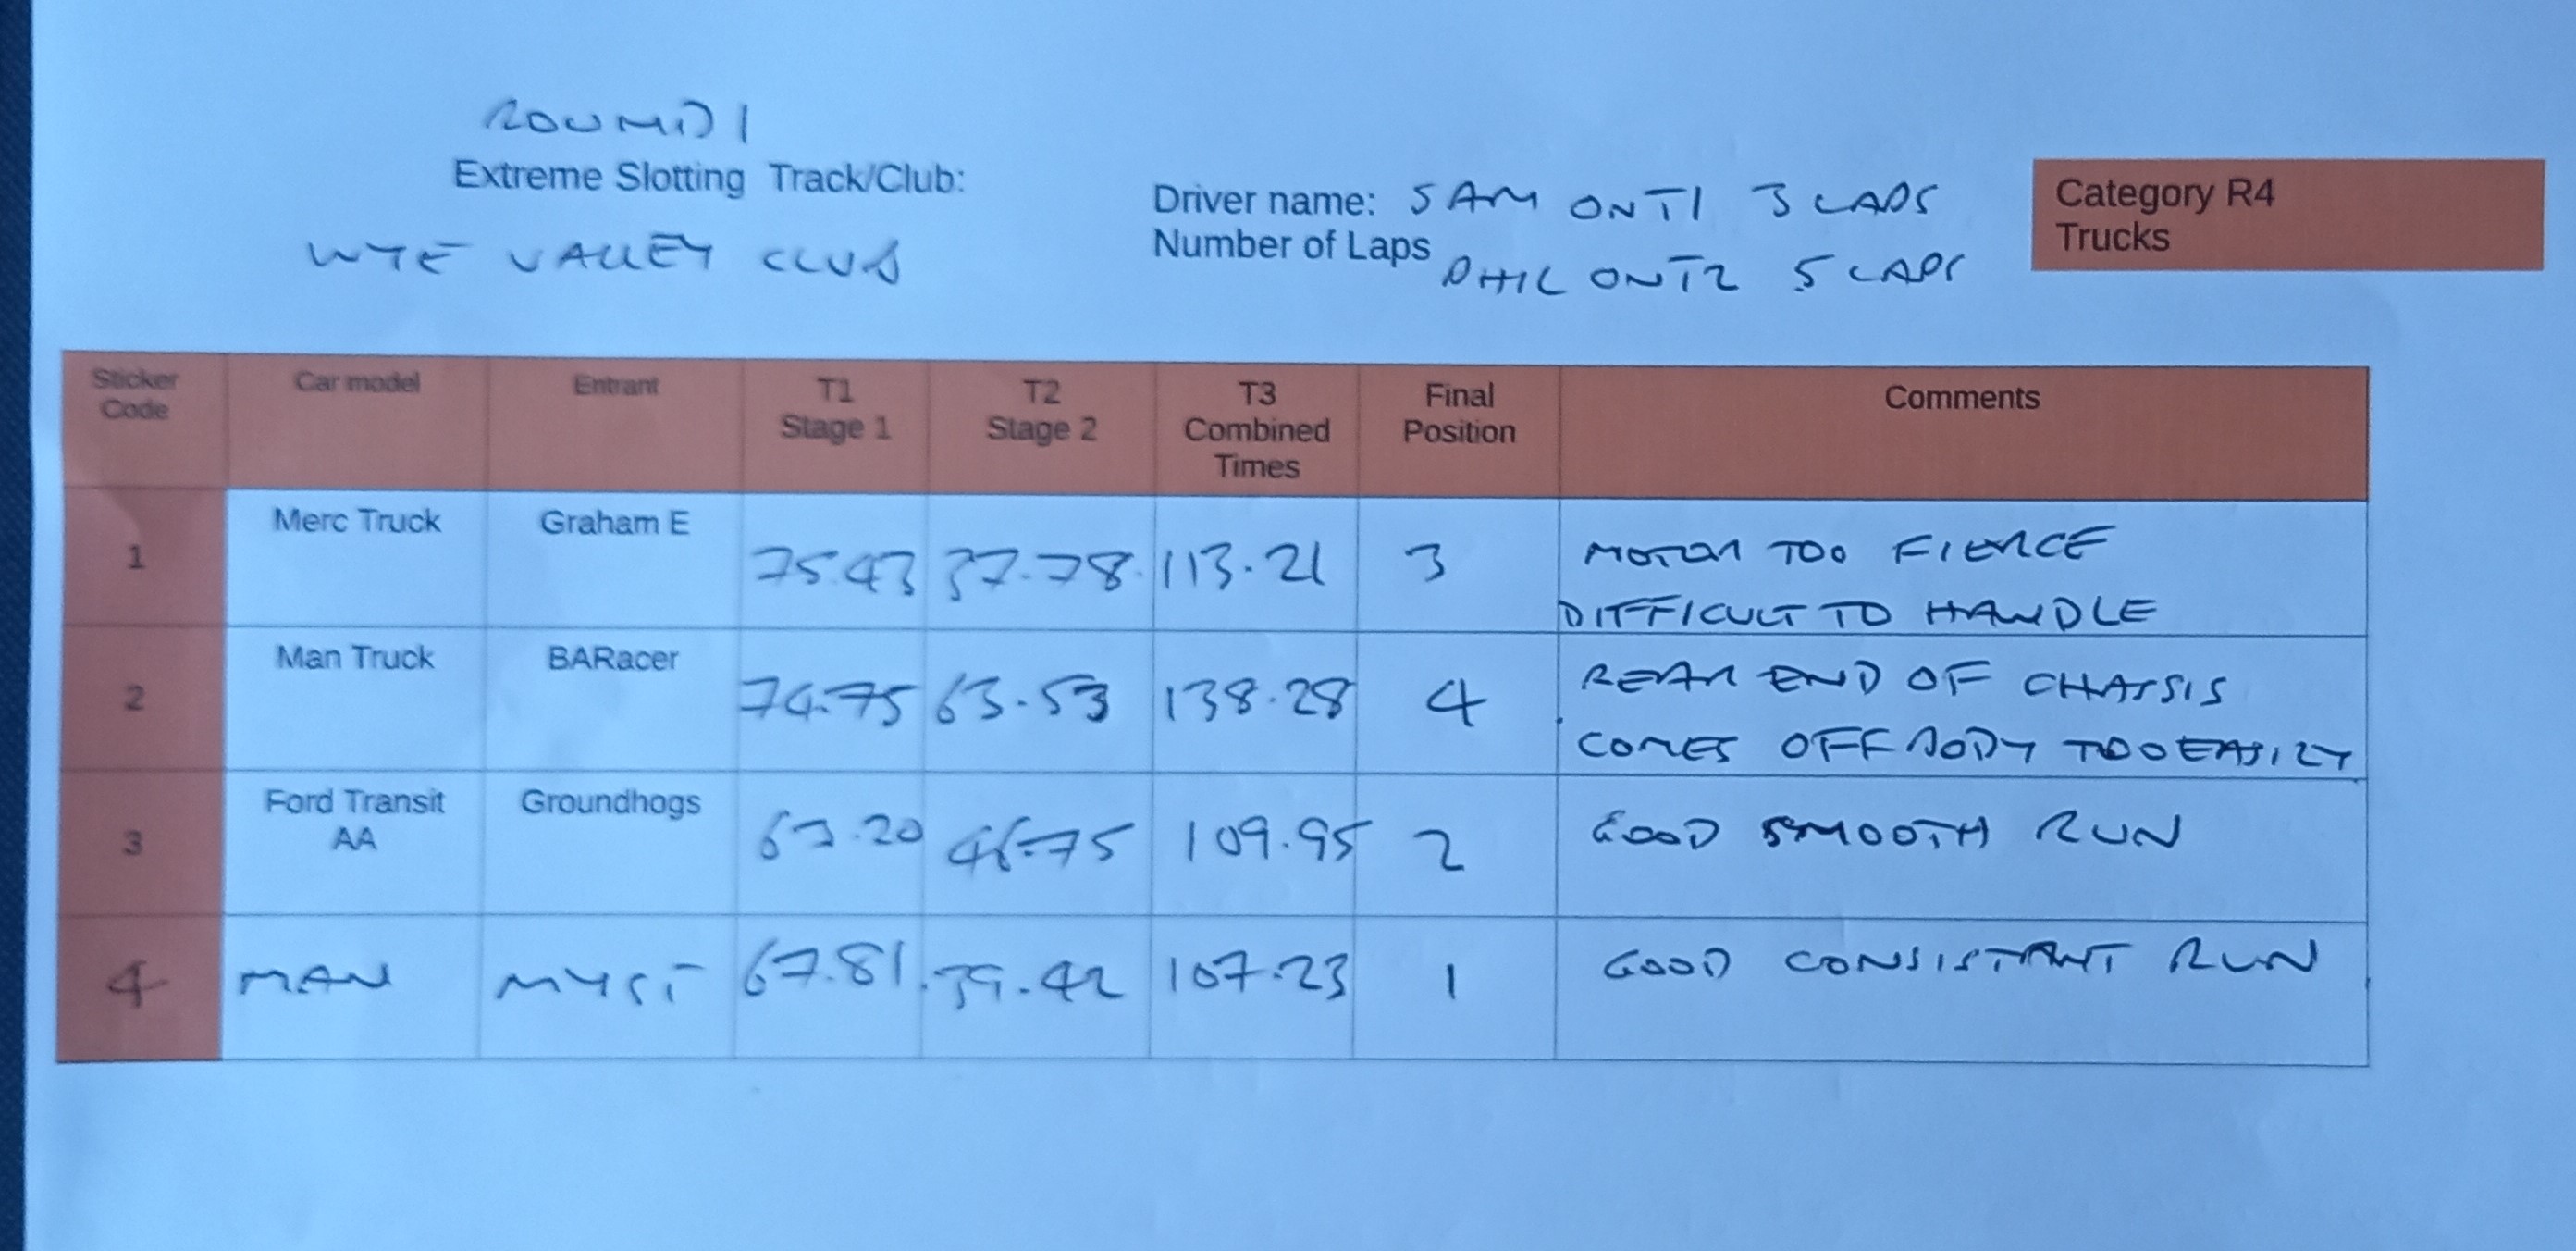 ROUND 1
Extreme Slotting Track/Club:
WYE VALLEY CLUB
Driver name: SAM ON T1 3 LAPS
Number of Laps PHIL ON T2 5 LAPS
Category R4
Trucks
Sticker Code Car model Entrant T1 Stage 1 T2 Stage 2 T3 Combined Times Final Position Comments
1 Merc Truck Graham E 75.43 37.78 113.21 3 MOTOR TOO FIERCE
DIFFICULT TO HANDLE
2 Man Truck BARacer 74.75 63.53 138.28 4 REAR END OF CHASSIS
COMES OFF BODY TOO EASILY
3 Ford Transit AA Groundhogs 63.20 46.75 109.95 2 GOOD SMOOTH RUN
4 MAN MYST 67.81 39.42 107.23 1 GOOD CONSISTANT RUN